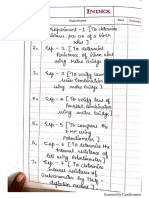 INDEX
Experiments
Date
1. Experiment-1 [To determine
resistance per cm of a given
wire]
2. Exp - 2 [To determine
Resistance of given wire
using metre Bridge]
3. Exp - 3 [To verify laws of
Series Combination
using metre bridge]
4. Exp - 4 [To verify law of
Parallel Combination
using metre bridge]
5. Exp - 5 [To compare the
EMF using
Potentiometer]
6. Exp - 6 [To determine the
Internal resistance of
Cell using potentiometer]
7. Exp - 7 [To determine
internal resistance of
Galvanometer by Half-
deflection method]
Scanned by CamScanner